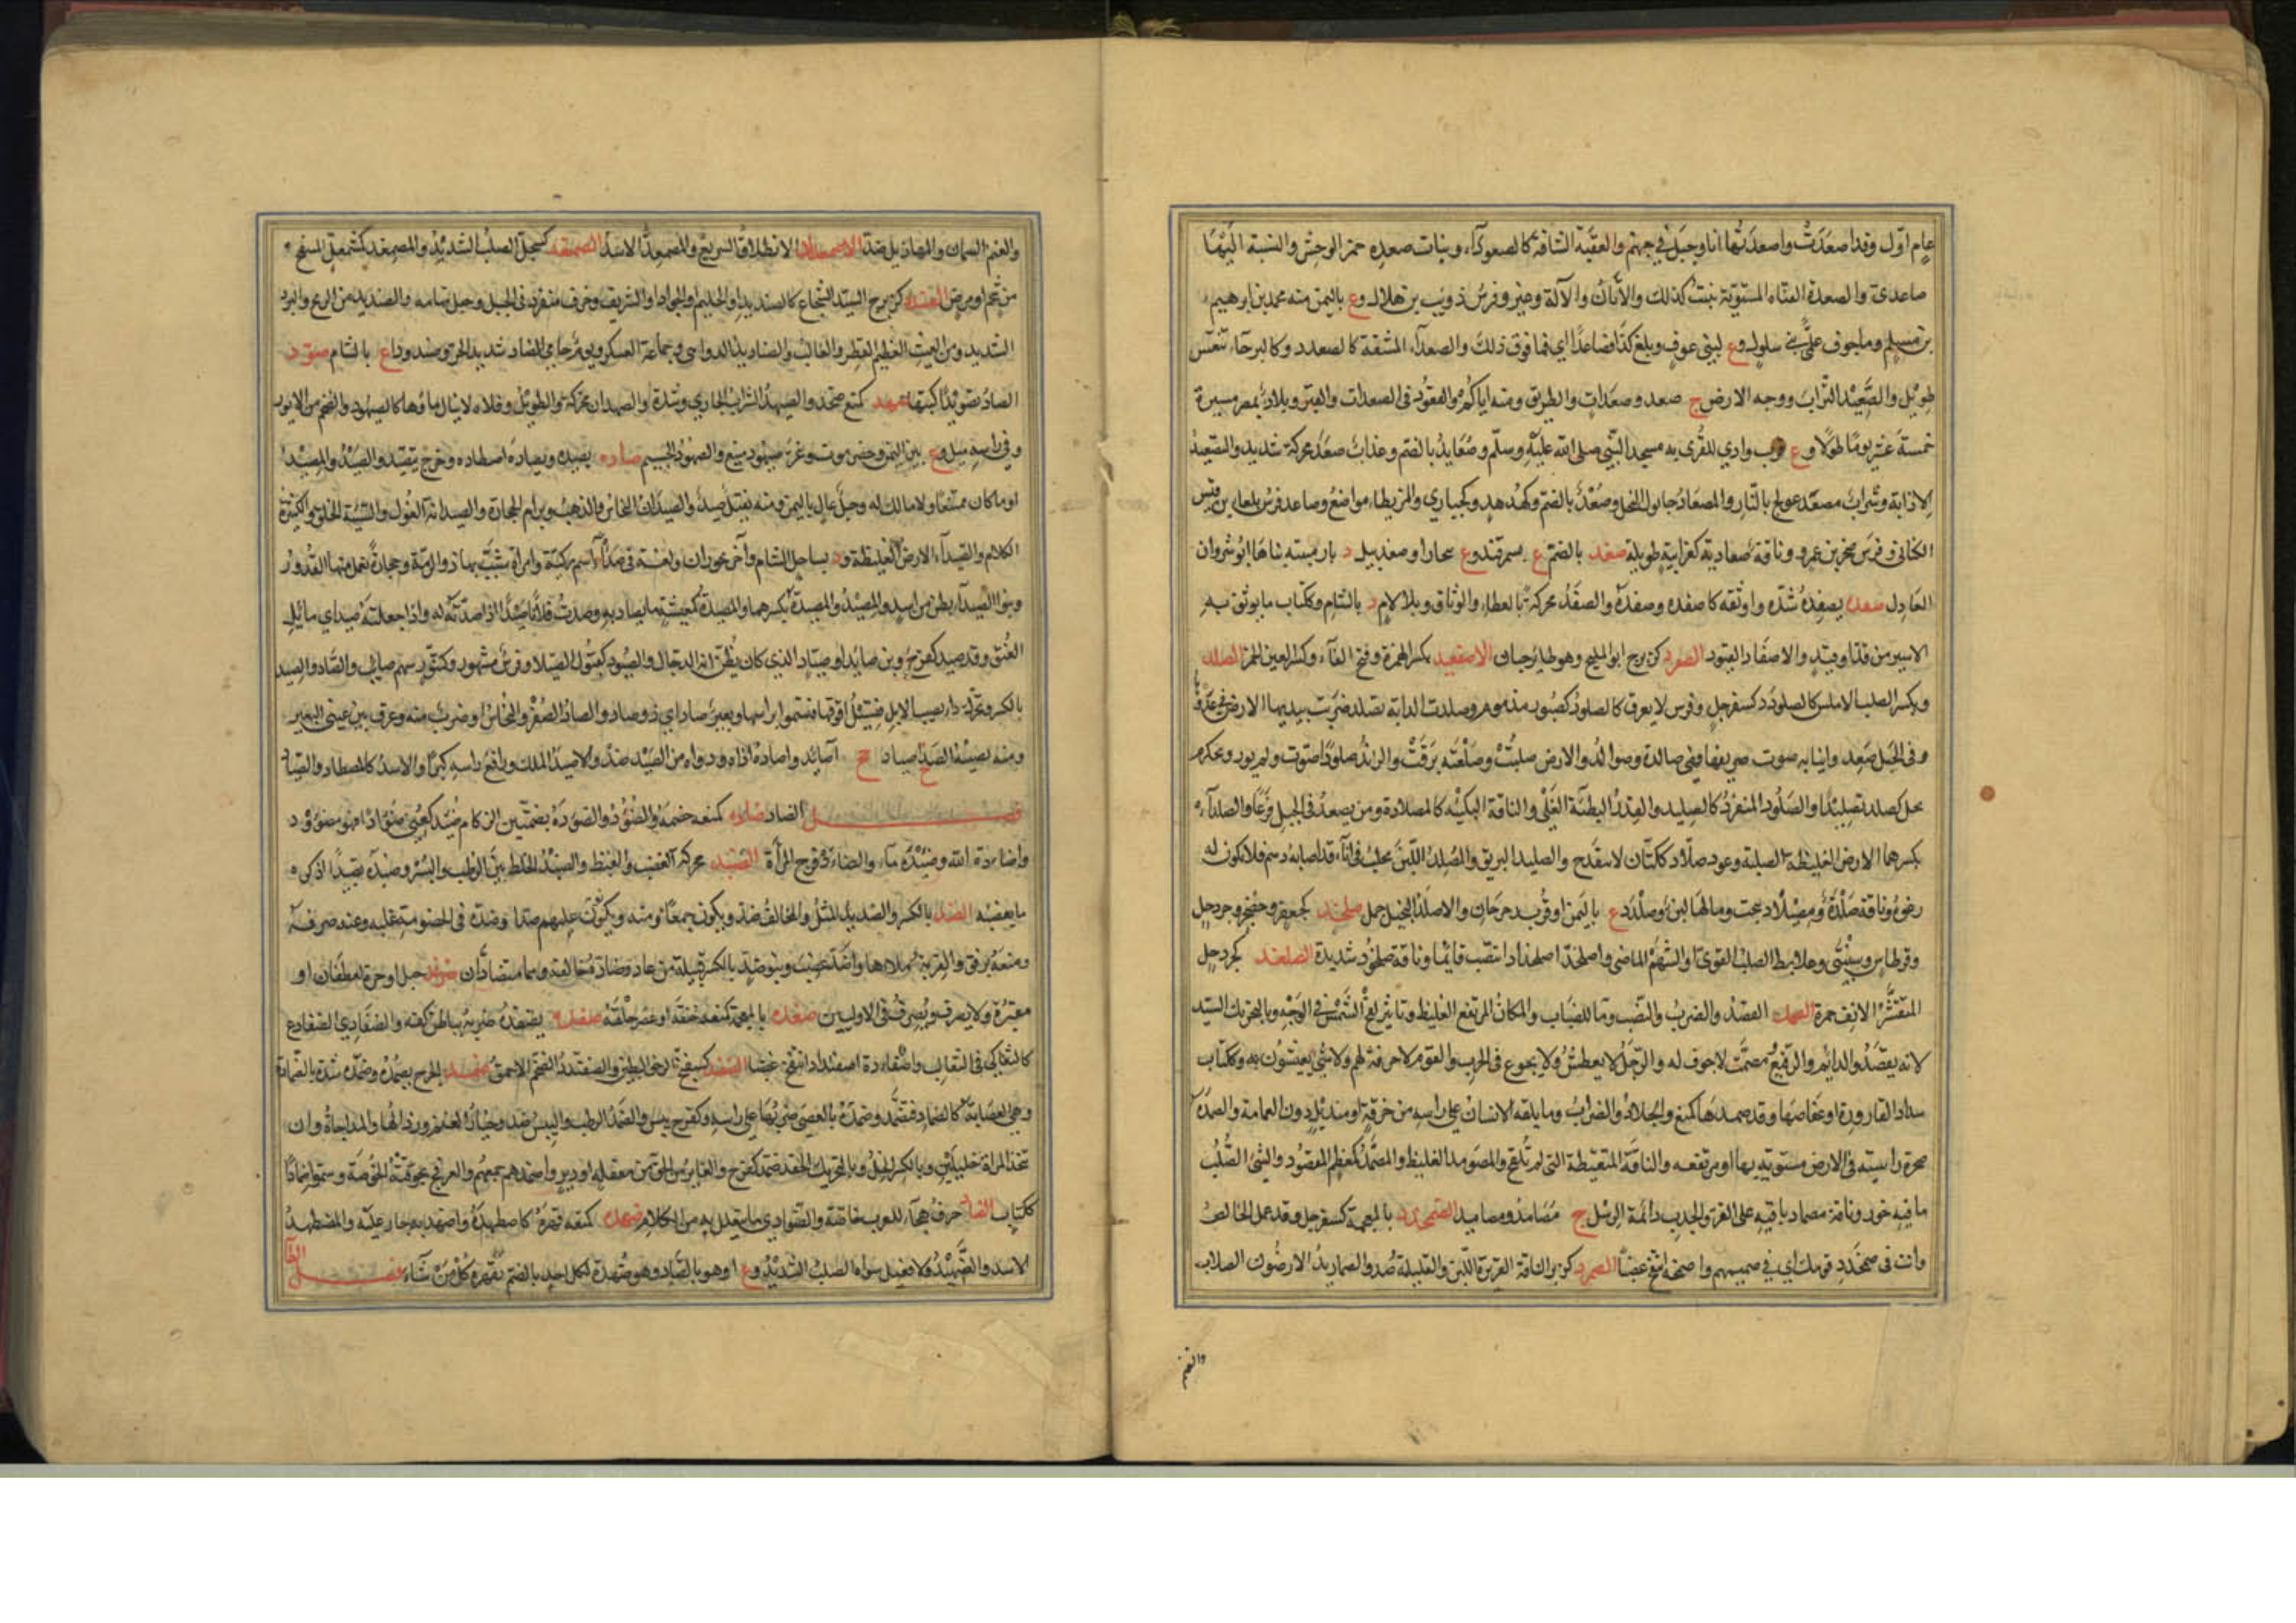 عام اوّل وقد اصعَدَتْ واصعدَتُها انا وجبل في جهنم والعقبة الشاقة كالصعوداء وبنات صعده حمر الوحش والنسبة اليها
صاعدى والصعدة القناة المستوية تنبت كذلك والأتان والآلة وعنز وفرس ذويب بن هلال وع باليمن منه محمد بن ابرهيم
بن مسلم وما لجوف علمى بنى سلول وع لبنى عوف وبلغ كذا فصاعدا اى فما فوق ذلك والصعداء المشقة كالصعدد وكالبرحاء تنفس
طويل والصَّعيد التراب ووجه الارض ج صعد وصعدات والطريق ومنه اياكم والقعود فى الصعدات والقبر وبلاد بمصر مسيرة
خمسة عشر يوما طولا وع قرب وادي القرى به مسجد النبي صلى الله عليه وسلم وصعايد بالضم وعذاب صعد محركة شديد والتصعيد
الاذابة وشراب مصعّد عولج بالنار والمصعاد حابول النخل وصعد بالضم وكهدهد وكحبارى والمريطاء مواضع وصاعد فرس بلعاء بن قيس
الكناني وفرس صخر بن عمرو وناقة صعادية كغرابية طويلة صغد بالضم ع بسمرقند وع ببخارا وصغدبيل د بارمينية بناها انوشروان
العادل صفده يصفده شده واوثقه كاصفده وصفده والصفد محركة العطاء والوثاق وبلا لام د بالشام وككتاب ما يوثق به
الاسير من قد او قيد والاصفاد القيود الصفرد كزبرج ابو المليح وهو طاير جبان الاصفعيد بكسر الهمزة وفتح الفاء وكسر العين الخمر الصلد
ويكسر الصلب الاملس كالصلودد كسفرجل وفرس لا يعرق كالصلود كصبور مذموم وصلدت الدابة تصلد ضربت بيديها الارض فى عدوها
وفى الجبل صعد وانيابه صوت صريفها فهى صالدة وصوالد والارض صلبت وصلعته برقت والزند صلودا صوّت ولم يور وككرم
بخل كصلد تصليدا والصلود المنفرد كالصليد والقدر البطيئة الغلى والناقة البكيئه كالمصلادة ومن يصعد فى الجبل فزعا والصلداء
بكسرهما الارض الغليظة الصلبة وعود صلّاد ككتان لا ينقدح والصليد البريق والمصلد اللبن يحلب فى اناء قد اصابه دسم فلا تكون له
رغوة وناقة صلدة ومصلاد نتجت ومالها لبن وصلدد ع باليمن او قرب رحرحان والاصلد البخيل جمل صلخد كجعفر وحضجر وجردحل
وقرطاس وسبنتى وعلابط الصلب القوى او الشهم الماضى واصلخد اصلخدادا انتصب قائما وناقة صلخود شديدة الصلغد كجردحل
المتقشر الانف حمرة الصمد القصد والضرب والنصب وما للضباب والمكان المرتفع الغليظ وتاثير لفح الشمس فى الوجه وبالتحريك السيد
لانه يقصد والدائم والرفيع ومصمت لا جوف له والرجل لا يعطش ولا يجوع فى الحرب والقوم لا حرفة لهم ولا شئ يعيشون به وككتاب
سداد القارورة او عفاصها وقد صمدها كمنع والجلاد والضراب وما يلفه الانسان على راسه من خرقة او منديل دون العمامة والصمدة
صخرة راسية فى الارض مستوية بها او مرتفعه والناقة المتعيّطة التى لم تلقح والمصومد الغليظ والمصمد كمعظم المقصود والشئ الصلب
ما فيه خور وناقة مصماد باقية على القر والجدب دائمة الرسل ج مصامد ومصاميد الصمخدد بالمعجمة كسفرجل وقد عمل الخالص
وانت فى صمخدد قومك اى فى صميمهم واصمخد انتفخ غضبا الصمرد كزبرج الناقة الغزيرة اللبن والقليلة ضد والصماريد الارضون الصلاب
والغنم
والغنم السمان والمهازيل ضد الاصمعداد الانطلاق السريع والمصمعد الاسد الصمغد كسجلّ الصلب الشديد والمصمغد كمشمعل المنتفخ
من شحم او مرض الصنديد كزبرج السيد الشجاع كالصنديد او الحليم او الجواد او الشريف وحرف منفرد فى الجبل وجبل بتهامه والصنديد من الريح والبرد
الشديد ومن الغيث العظيم القطر والغالب والصناديد الدواهى وجماعة العسكر ويوم حامى الصناديد شديد الحر وصندوداء ع بالشام صوّد د
الصاد تصويدا كتبها صهد كمنع صخد والصيهد السراب الجاري وشدة والصهدان محركة والطويل وفلاة لا ينال ماؤها كالصيهود والضخم من الايور
وفى راسه ميل وع بين اليمن وحضرموت وعز صيهود منيع والصهود الجسيم صاده يصيده ويصاده اصطاده وخرج يتصيد والصيد والمصيد
او ما كان ممتنعا ولا مالك له وجبل عال باليمن ومنه نقيل صيد والصيدان النحاس والذهب وبرام الحجارة والصيدانة الغول والسيئة الخلق والكثيرة
الكلام والصيداء الارض الغليظة ود بساحل الشام وآخر بحوران ولغة فى صدّاء اسم ركية وامراة شبب بها ذو الرمة وحجارة تعمل منها القدور
وبنو الصيداء بطن من اسد والمصيد والمصيدة بكسرهما والمصيدة كمعيشة ما يصاد به وصدت فلانا صيدا اذا صدته له واذا جعلته اصيد اى مائل
العنق وقد صيد كفرح وبن صائد او صياد الذى كان يظن انه الدجال والصيود كقبول الصيلاء وفرس مشهور وكتنور سهم صايب والصاد والصيد
بالكسر ويحرك داء يصيب الابل فتسيل انوفها فتسموا براسها وبعير صاد اى ذو صاد والصاد الصفر والنحاس او ضرب منه وعرق بين عينى البعير
ومنه يصيبه الصيد اصياد ج أصائد واصاده اذاه وداواه من الصيد ضد والاصيد الملك ورافع راسه كبرا والاسد كالمصطاد والصياد
فصل الضاد ضاده كمنعه خصمه والضؤد والضؤدة بضمتين الزكام ضئد كعنى ضؤادا فهو مضؤود
واضاده الله وضئيدة ماء والضاد فرج المرأة الضبد محركة الغضب والغيظ والضبد الخلط بين الرطب والبسر وضبده تضبيدا اذكره
ما يغضبه الضد بالكسر والضديد المثل والمخالف ضد ويكون جمعا ومنه ويكونون عليهم ضدا وضده فى الخصومة غلبه وعنه صرفه
ومنعه برفق والقربة ملاها واضدّ غضب وبنو ضد بالكسر قبيلة من عاد وضاده خالفه وهما متضادان ضرغد جبل او حرة لغطفان او
مقبرة ولا يصرف ويصرف فى الاوليين ضغده بالمعجمة كمنعه خنقه او عصر حلقه ضفده يضفده ضربه بباطن كفه والضفادى الضفادع
كالثعالى فى الثعالب واضفادّ اضفئدادا انتفخ غضبا الضفند كسفنج الرخو البطين والضفندد الضخم الاحمق ضمد الجرح يضمده وضمده شده بالضمادة
وهى العصابة كالضماد فتضمد وضمده بالعصى ضربه بها على راسه وكفرح يبس والضمد الرطب واليبس ضد وخيار الغنم ورذالها والمداجاة وان
تتخذ المراة خليلين وبالكسر الخل وبالتحريك الحقد ضمد كفرح والغابر من الحق من معقلة او دين واضمدهم جمعهم والعرفج تجوفته الخوصة وسموا ضمادا
ككتاب الضاد حرف هجاء للعرب خاصة والضوادى ما يتعلل به من الكلام ضهده كمنعه قهره كاضطهده واضهد به جار عليه والمضطهد
الاسد والضهيد كلا فعيل سواه الصلب الشديد وع او هو بالصاد وهو ضهدة لكل احد بالضم يقهره كل من شاء فصل الطاء